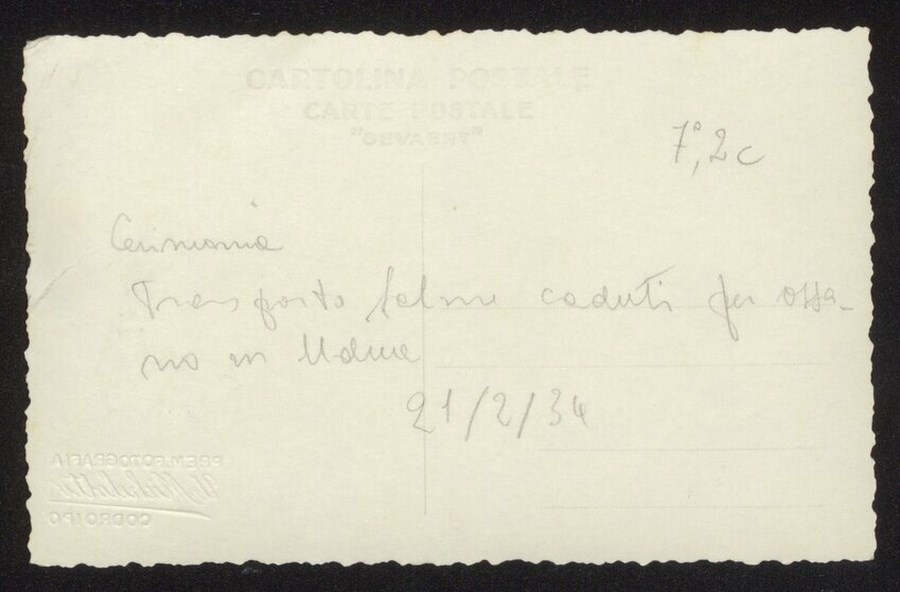 CARTOLINA POSTALE
CARTE POSTALE
"GEVAERT"
7°, 2c
Cerimonia
Trasporto salme caduti per ossa-
rio in Udine
21/2/34
PREM. FOTOGRAFIA
CODROIPO